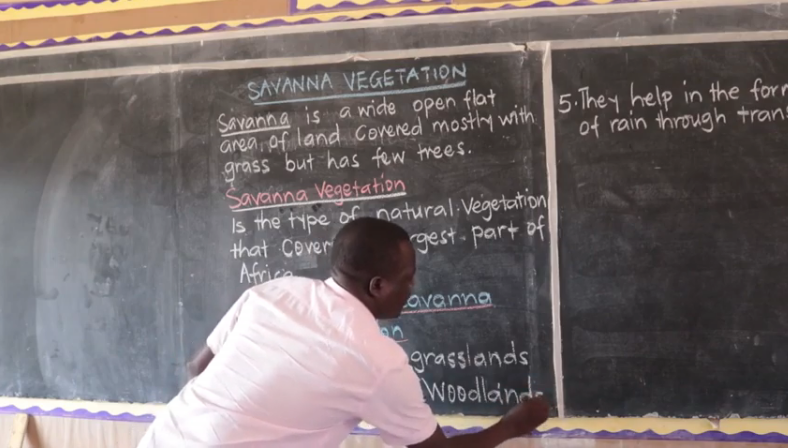 SAVANNA VEGETATION
Savanna is a wide open flat
area of land covered mostly with
grass but has few trees.
Savanna Vegetation
Is the type of natural Vegetation
that part of
Africa
avanna
grasslands
Woodlands
5. They help in the
of rain through